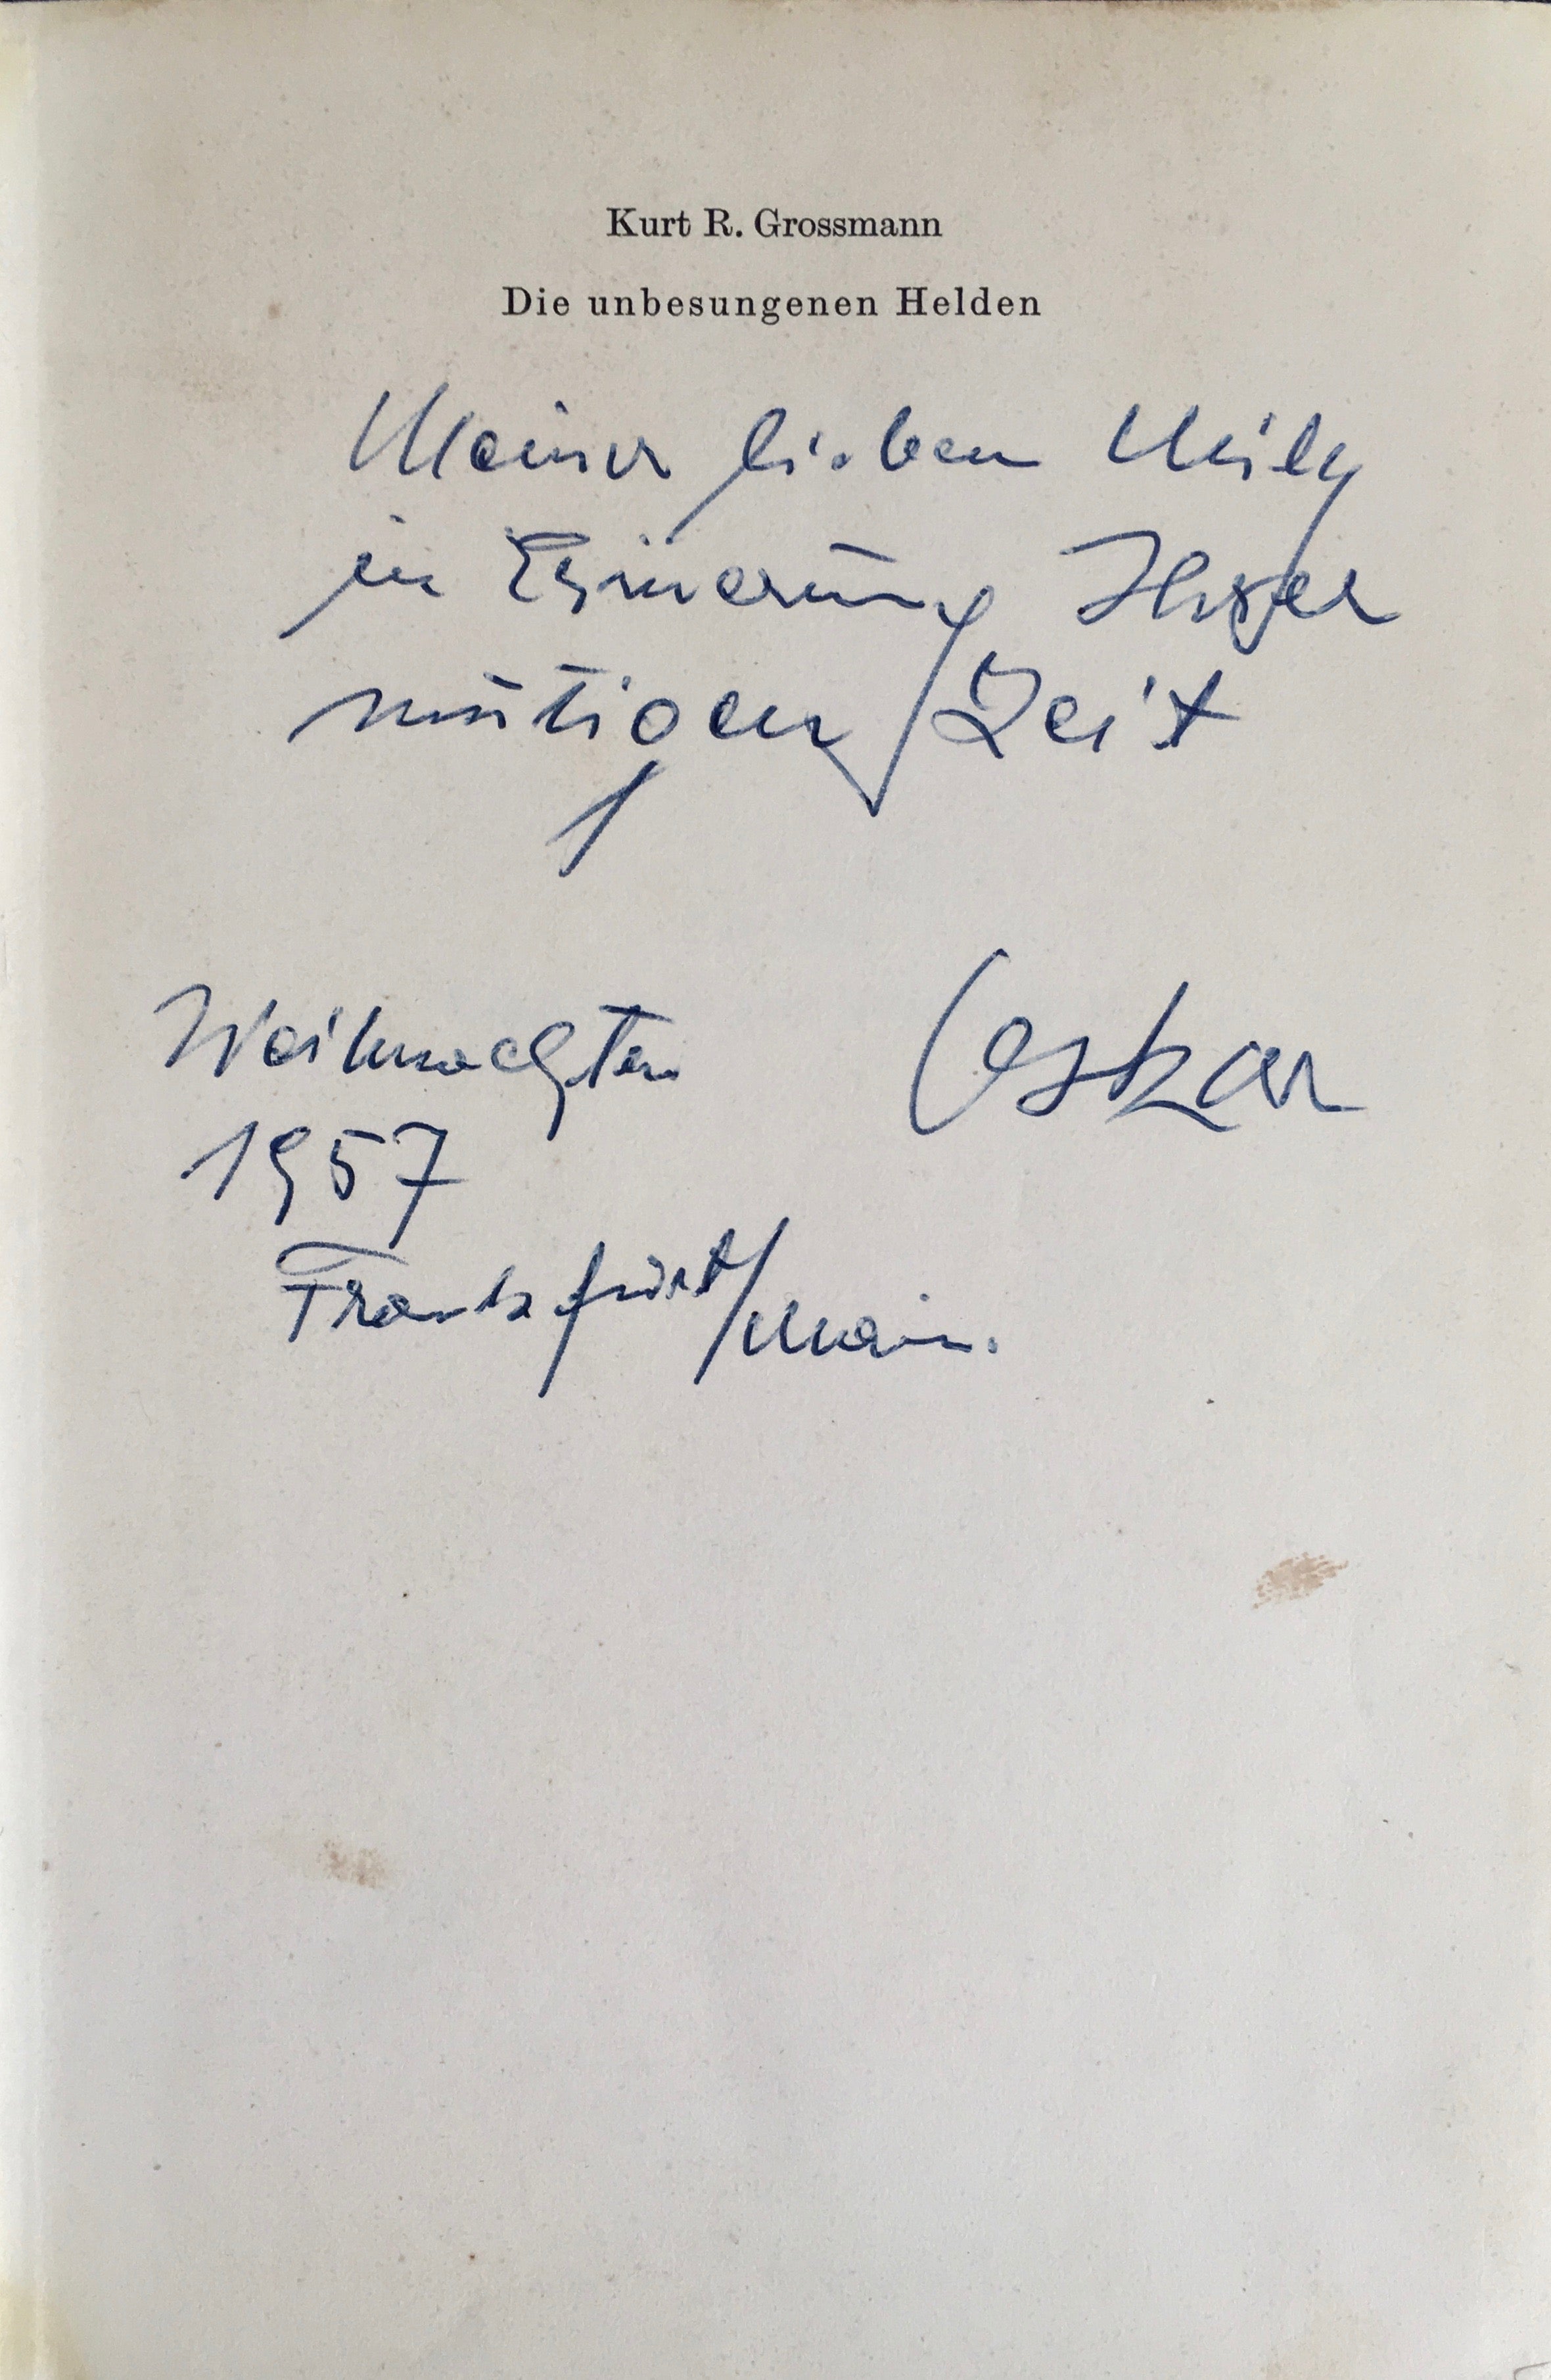 Kurt R. Grossmann
Die unbesungenen Helden
Meiner lieben
in Erinnerung Ihrer
mutigen Zeit
Weihnachten Oskar
1957
Frankfurt/Main.